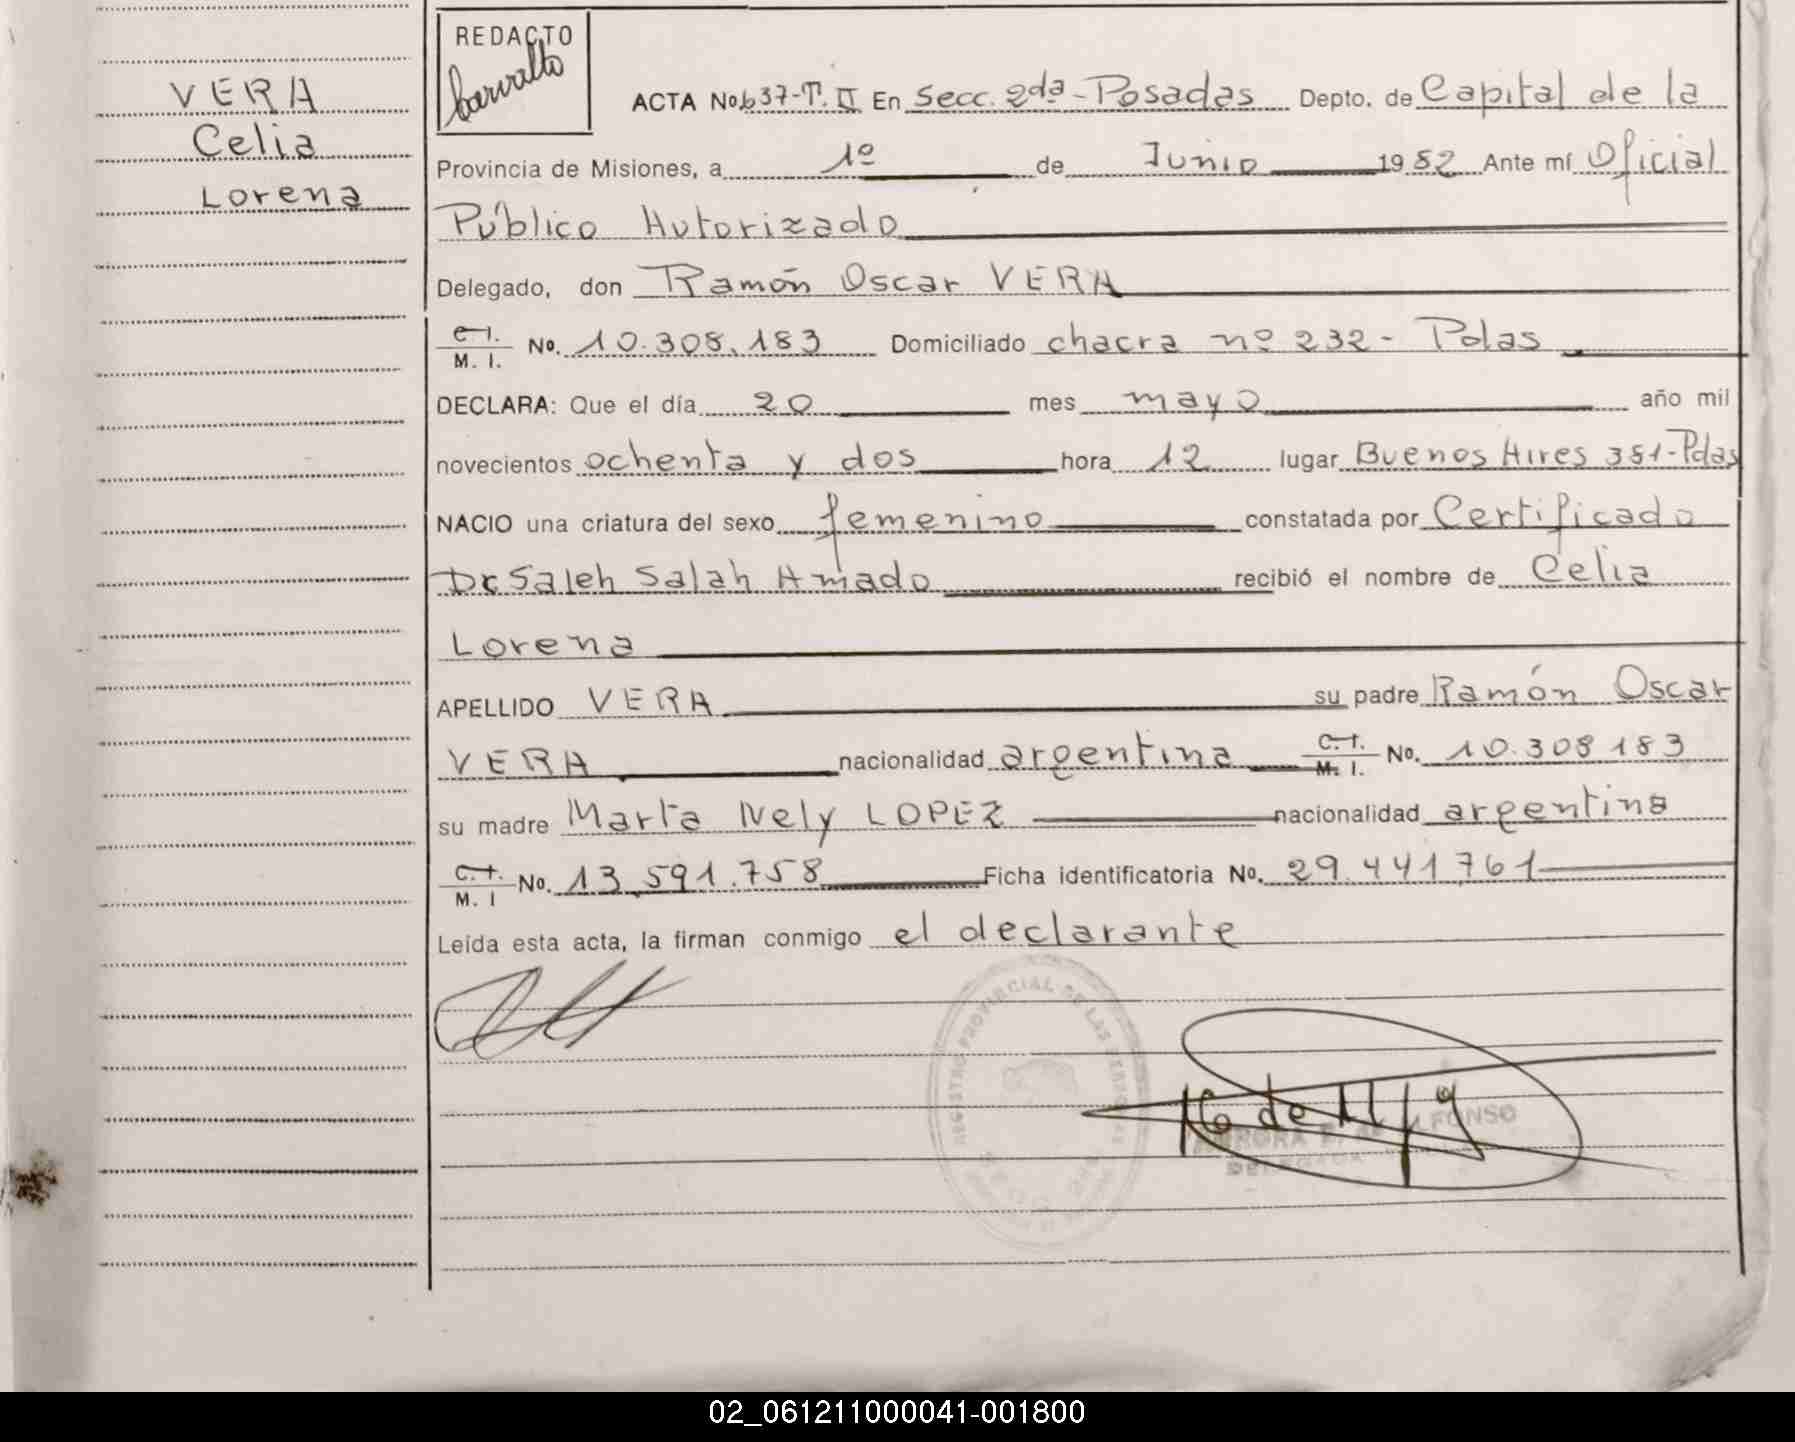 VERA
Celia
Lorena
REDACTO
barralto
ACTA No. 637-T. II En Secc. 2da - Posadas Depto. de Capital de la
Provincia de Misiones, a 1º de Junio 1982 Ante mí Oficial
Público Autorizado
Delegado, don Ramón Oscar VERA
C. I. M. I. No. 10.308.183 Domiciliado chacra nº 232 - Pdas
DECLARA: Que el día 20 mes mayo año mil
novecientos ochenta y dos hora 12 lugar Buenos Aires 381-Pdas
NACIO una criatura del sexo femenino constatada por Certificado
Dr. Saleh Salah Amado recibió el nombre de Celia
Lorena
APELLIDO VERA su padre Ramón Oscar
VERA nacionalidad argentina C. I. M. I. No. 10.308 183
su madre Marta Nely LOPEZ nacionalidad argentina
C. I. M. I No. 13.591.758 Ficha identificatoria No. 29.441.761
Leída esta acta, la firman conmigo el declarante
REGISTRO PROVINCIAL DE LAS PERSONAS
DELEGADA
02_061211000041-001800